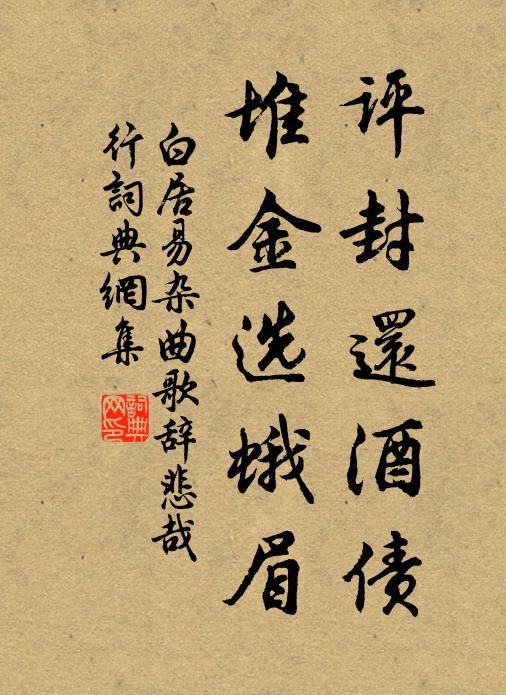 评封還酒债
堆金选蛾眉
白居易杂曲歌辞悲哉
行詞典網集
詞典
网印